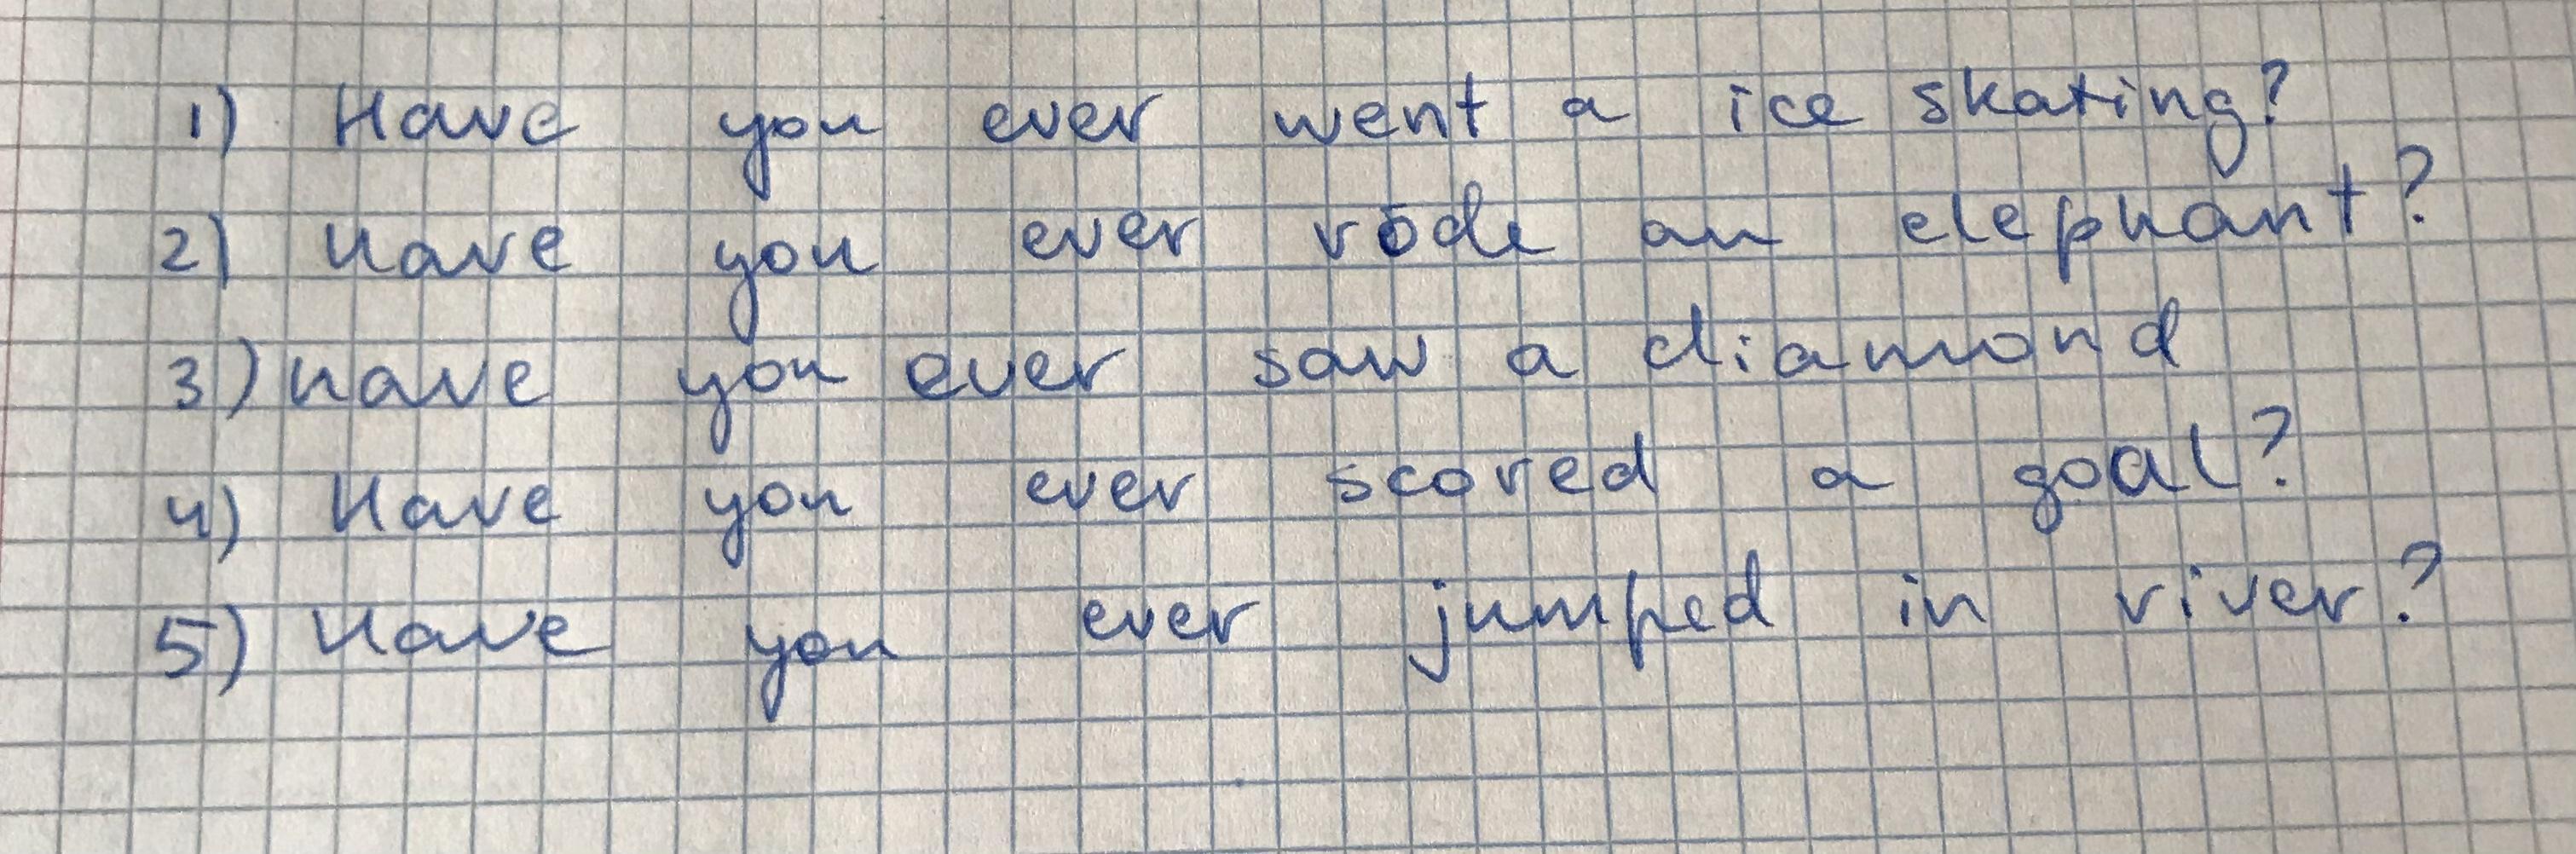 1) Have you ever went a ice skating?
2) Have you ever rode an elephant?
3) have you ever saw a diamond
4) Have you ever scored a goal?
5) Have you ever jumped in river?